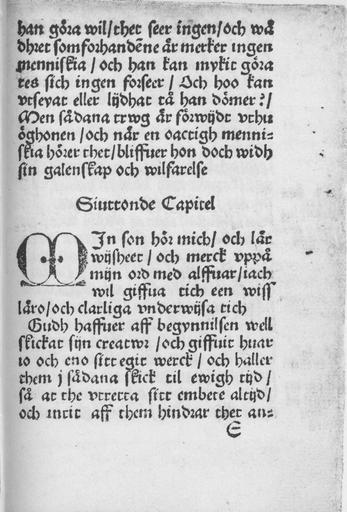 han göra wil/thet seer ingen/och wä
dhret somforhandēne är mercker ingen
menniskia / och han kan mykit göra
tes sich ingen forseer / Och hoo kan
vtseyat eller lijdhat tå han dömer ?/
Men sådana trwg är förwijdt vthu
öghonen / och når en oactigh menni⸗
skia hörer thet/bliffuer hon doch widh
sin galenskap och wilfarelse
Siuttonde Capitel
MIn son hör mich/ och lär
wijsheet / och merck vppå
mijn ord med alffuar/iach
wil giffua tich een wiss
läro/och clarliga vnderwijsa tich
Gudh haffuer aff begynnilsen well
skickat sijn creatwr /och giffuit huar
io och eno sitt egit werck / och haller
them j sådana skick til ewigh tijd /
så at the vtretta sitt embete altijd/
och intit aff them hindrar thet an⸗
E